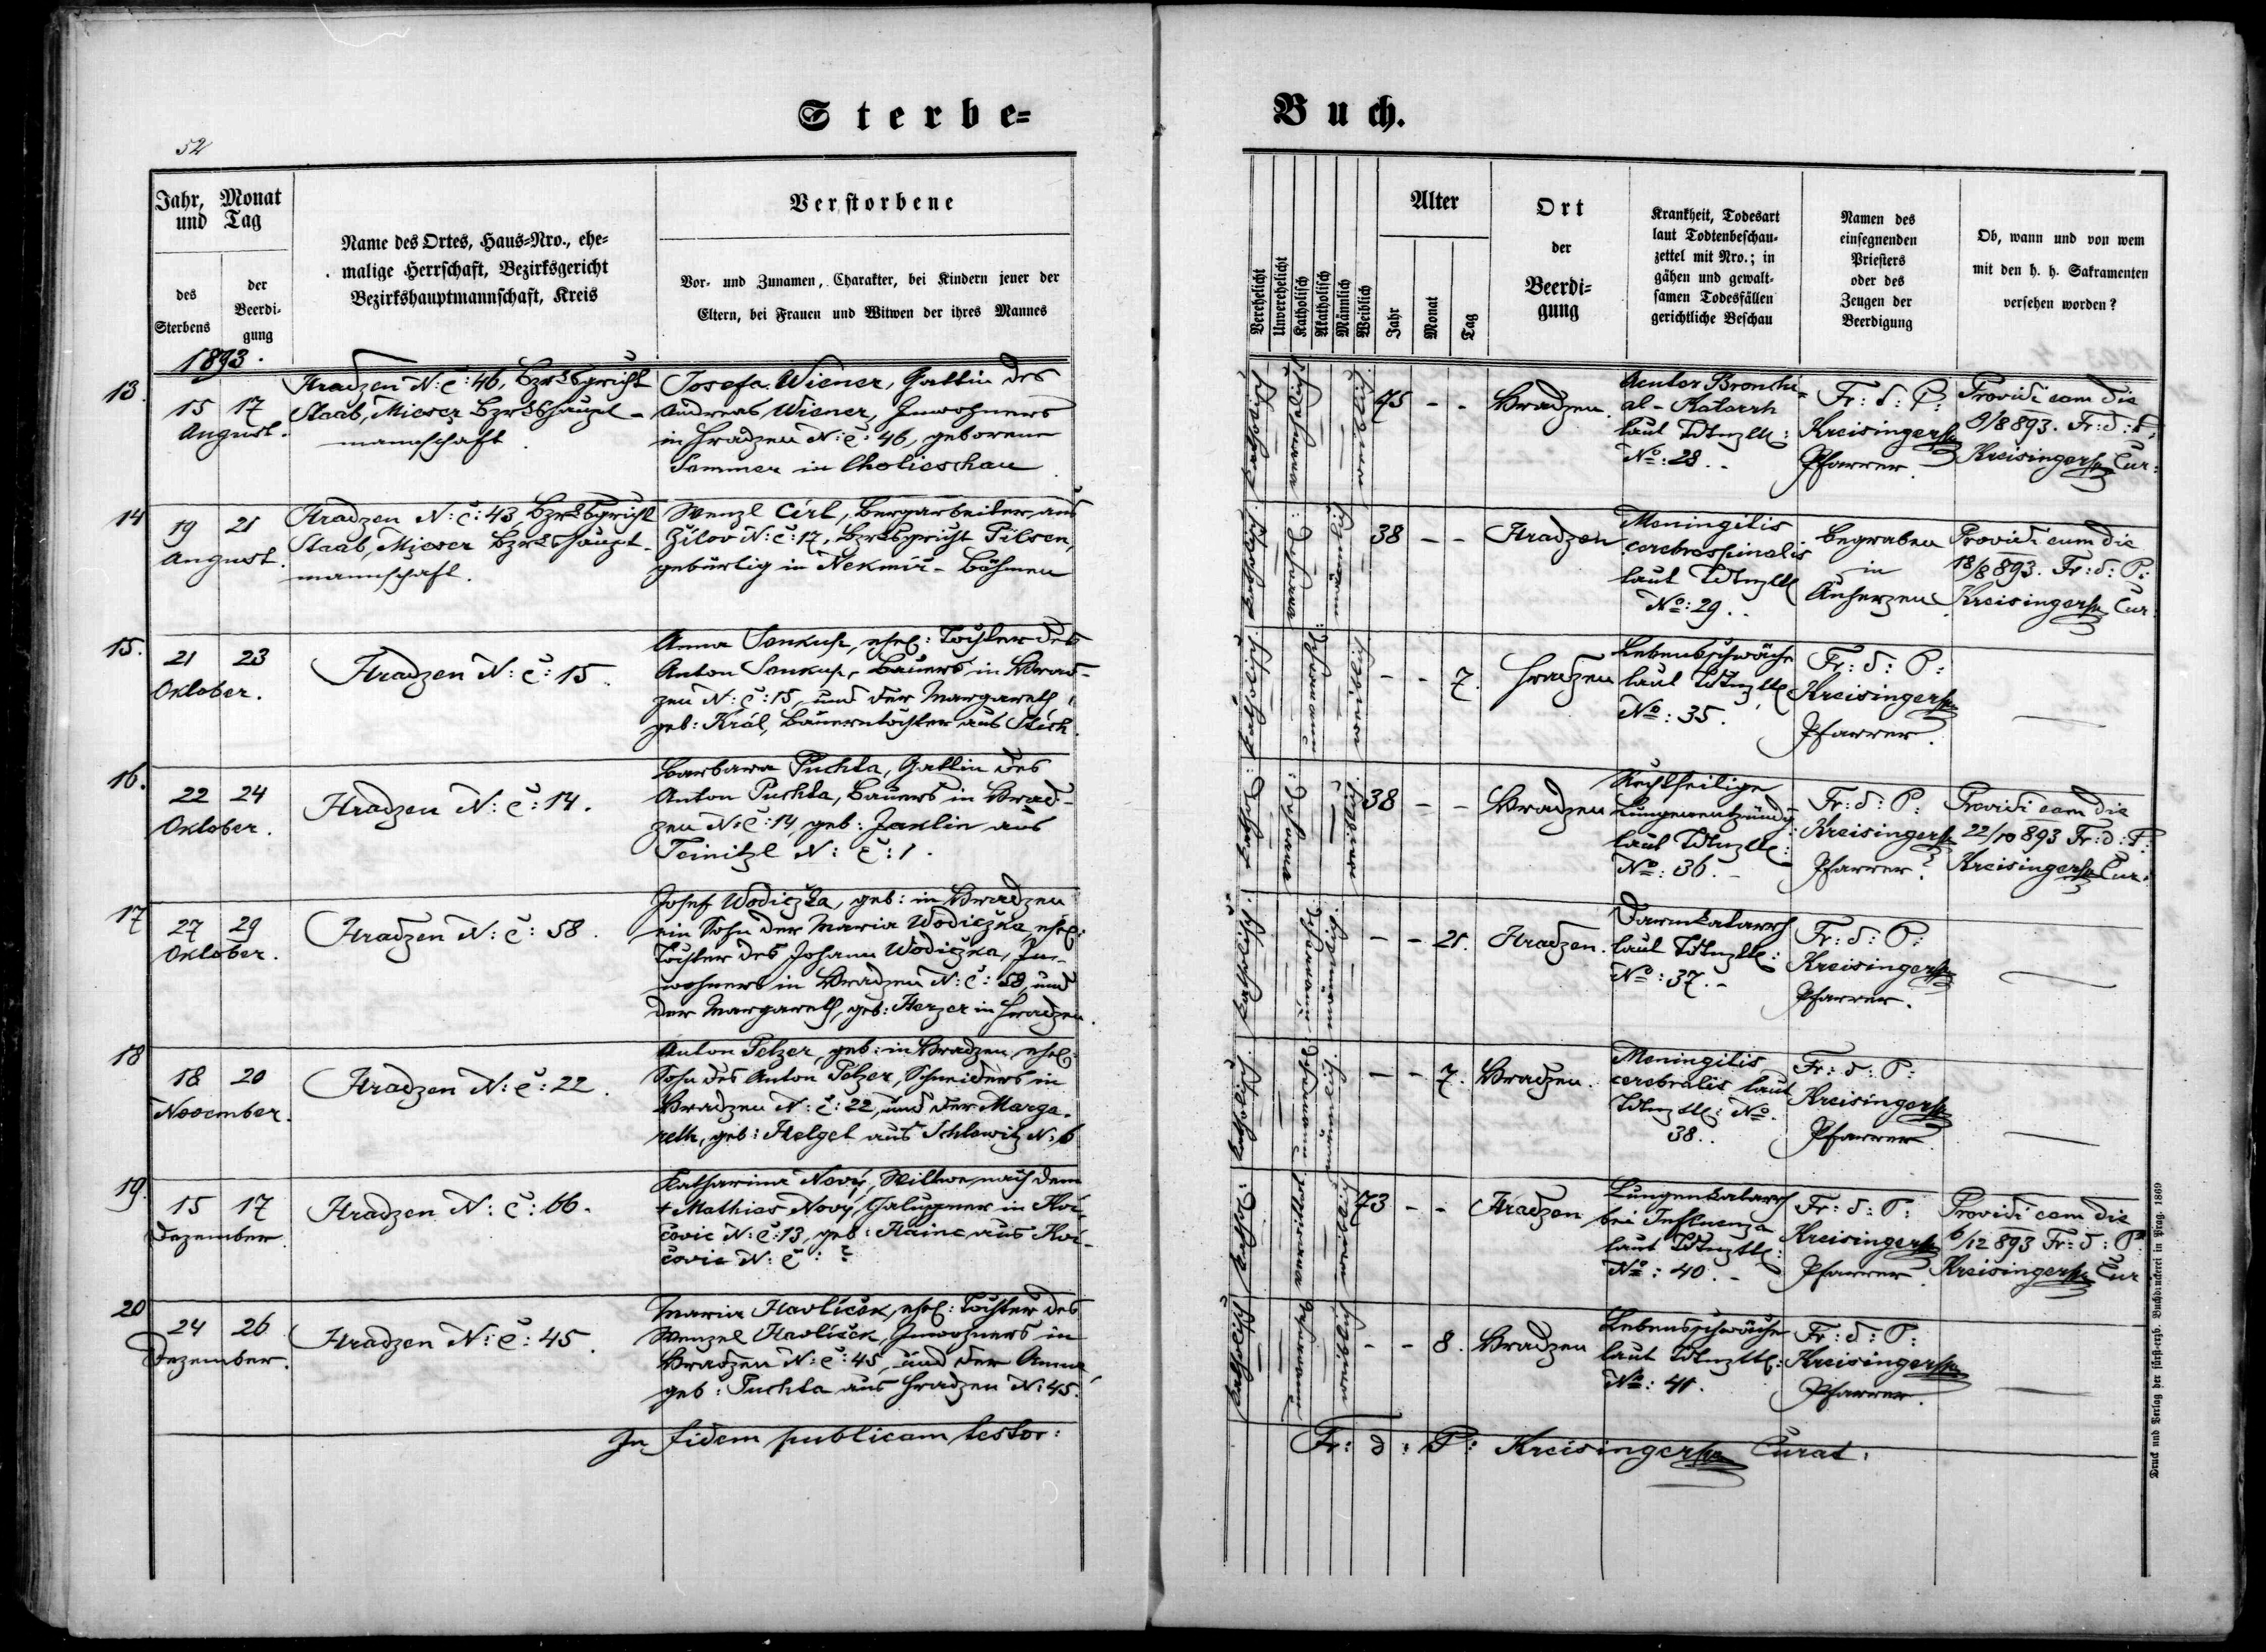 Sterbe=
Buch.
52
Jahr, Monat
und Tag
des
Sterbens
der
Beerdi-
gung
Name des Ortes, Haus=Nro., ehe=
malige Herrschaft, Bezirksgericht
Bezirkshauptmannschaft, Kreis
Verstorbene
Vor- und Zunamen, Charakter, bei Kindern jener der
Eltern, bei Frauen und Witwen der ihres Mannes
Verehelicht
Unverehelicht
Katholisch
Akatholisch
Männlich
Weiblich
Alter
Jahr
Monat
Tag
Ort
der
Beerdi=
gung
Krankheit, Todesart
laut Todtenbeschau-
zettel mit Nro.; in
gähen und gewalt-
samen Todesfällen
gerichtliche Beschau
Namen des
einsegnenden
Priesters
oder des
Zeugen der
Beerdigung
Ob, wann und von wem
mit den h. h. Sakramenten
versehen worden?
1893.
13.
15 17
August.
Hradzen N: č: 46, Bzrksgricht
Staab, Mieser Bzrkshaupt-
mannschaft.
Josefa Wiener, Gattin des
Andreas Wiener, Inwohners
in Hradzen N: č: 46, geborene
Sommer in Chotieschau
katholisch
weiblich
45 - -
Hradzen.
Acuter Bronchi-
al-Katarrh
laut
No: 28.
Fr: d: P:
Kreisinger
Pfarrer.
Providi eam die
9/8 893. Fr: d: P:
Kreisinger Cur:
14
19 21
August.
Hradzen N: č: 43, Bzrksgricht
Staab, Mieser Bzrkshaupt-
mannschaft.
Wenzl Cirl, Bergarbeiter, aus
Žilov N: č: 17, Bzrksgricht Pilsen,
gebürtig in Nekmíř - Böhmen
katholisch
männlich
38 - -
Hradzen
Meningitis
cerebrospinalis
laut
No: 29.
begraben
in
Auherzen
Providi eum die
18/8 893. Fr: d: P:
Kreisinger Cur
15.
21 23
Oktober.
Hradzen N: č: 15.
Anna Senkup, ehel: Tochter des
Anton Senkup, Bauers in Hrad-
zen N: č: 15, und der Margareth,
geb: Král, Bauerntochter aus Stich.
katholisch
weiblich
- - 7.
Hradzen
Lebensschwäche
laut
No: 35.
Fr: d: P:
Kreisinger
Pfarrer.
—
16.
22 24
Oktober.
Hradzen N: č: 14.
Barbara Puchta, Gattin des
Anton Puchta, Bauers in Hrad-
zen N: č: 14, geb: Jaklin aus
Teinitzl N: č: 1.
kathol:
38 - -
Hradzen
Rechtseitige
Lungenentzündg
laut
No: 36.
Fr: d: P:
Kreisinger
Pfarrer.
Providi eam die
22/10 893 Fr: d: P:
Kreisinger Cur.
17
27 29
Oktober.
Hradzen N: č: 58.
Josef Wodiczka, geb: in Hradzen
ein Sohn der Maria Wodiczka, ehel:
Tochter des Johann Wodiczka, In-
wohners in Hradzen N: č: 58, und
der Margareth, geb: Herzer in Hradzen.
katholisch
männlich
- - 21.
Hradzen.
Darmkatarrh
laut
No: 37.-
Fr: d: P:
Kreisinger
Pfarrer.
—
18
18 20
November.
Hradzen N: č: 22.
Anton Pelzer, geb: in Hradzen, ehel:
Sohn des Anton Pelzer, Schneiders in
Hradzen N: č: 22, und der Marga-
reth, geb: Helget aus Schlowitz N: 6
katholisch
männlich
- - 7.
Hradzen.
Meningitis
cerebralis laut
No.
38.
Fr: d: P:
Kreisinger
Pfarrer
—
19.
15 17
Dezember
Hradzen N: č: 66.
Katharina Nový, Wittwe nach dem
† Mathias Nový, Chaluppner in Kvi-
čovic N: č: 13, geb: Haine aus Kvi-
čovic N: č: ?
kathol:
weiblich
73 - -
Hradzen
Lungenkatarrh
bei Influenza
laut
No: 40.-
Fr: d: P:
Kreisinger
Pfarrer
Providi eam die
6/12 893 Fr: d: P:
Kreisinger Cur
20
24 26
Dezember.
Hradzen N: č: 45.
Maria Havlíček, ehel: Tochter des
Wenzel Havlíček, Inwohners in
Hradzen N: č: 45, und der Anna,
geb: Puchta aus Hradzen N: 45.
katholisch
weiblich
- - 8.
Hradzen
Lebensschwäche
laut
No: 41.
Fr: d: P:
Kreisinger
Pfarrer.
—
In fidem publicam testor:
Fr: d: P: Kreisinger Curat.
Druck und Verlag der fürst-erzb. Buchdruckerei in Prag. 1869